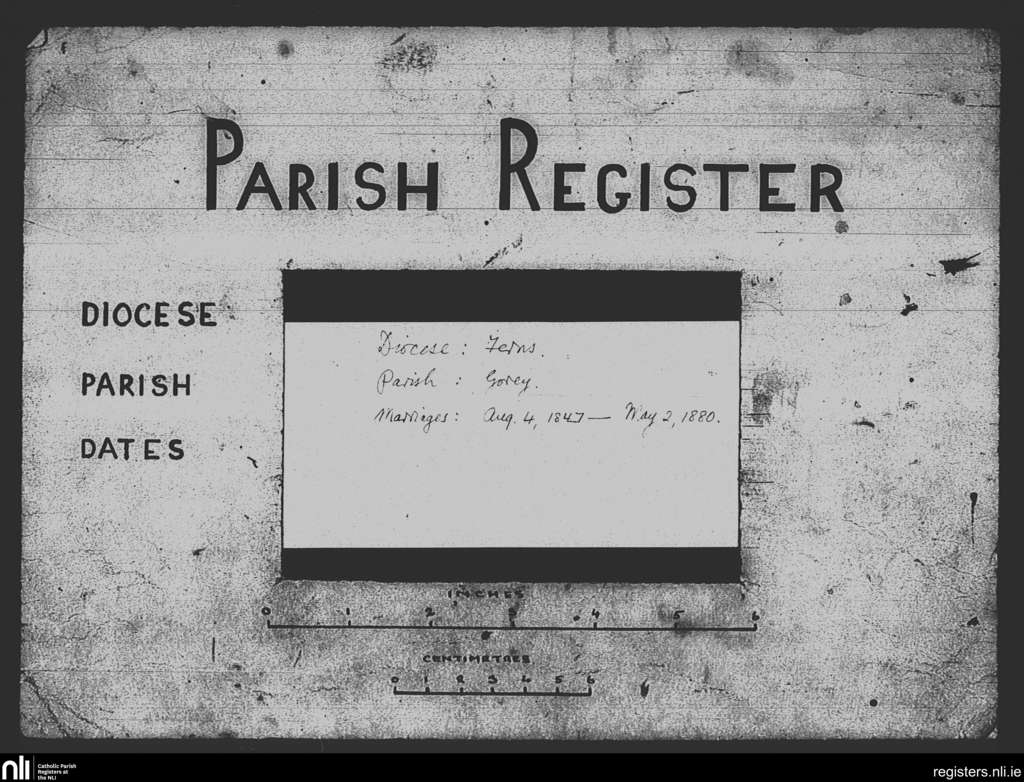 PARISH REGISTER
DIOCESE
PARISH
DATES
Diocese : Ferns.
Parish : Gorey.
Marriages : Aug. 4, 1847 — May 2, 1880.
INCHES
0 1 2 3 4 5 6
CENTIMETRES
0 1 2 3 4 5 6
nli
Catholic Parish
Registers at
the NLI
registers.nli.ie